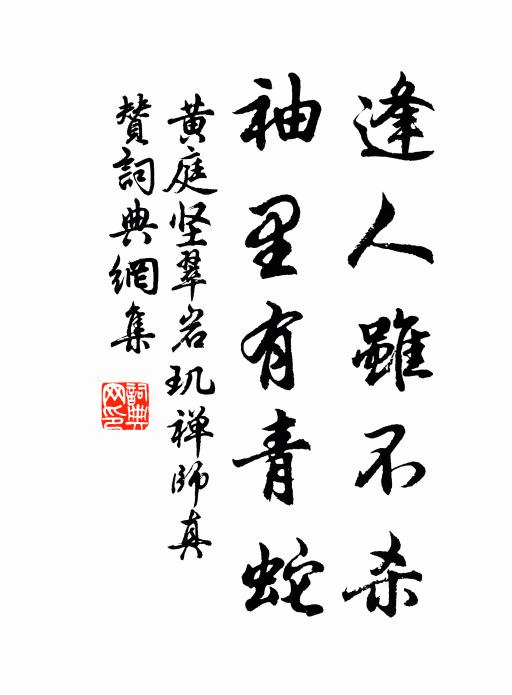 逢人雖不杀
袖里有青蛇
黄庭坚翠岩玑禅師真
賛詞典網集
詞典网印